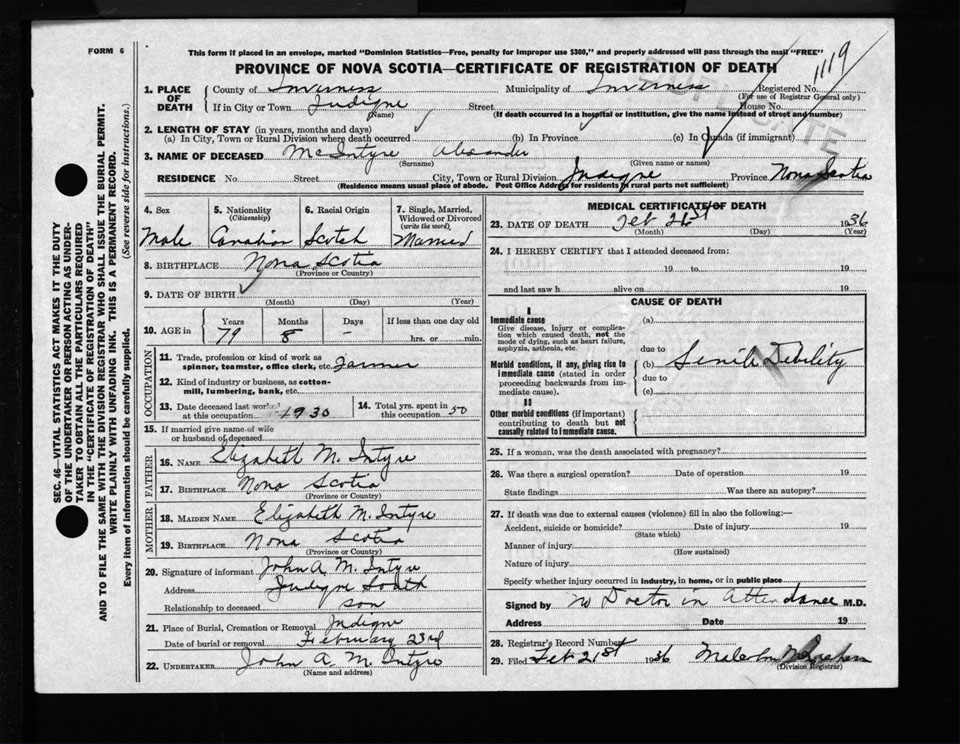 FORM 6
This form if placed in an envelope, marked "Dominion Statistics—Free, penalty for improper use $300," and properly addressed will pass through the mail "FREE"
1119
PROVINCE OF NOVA SCOTIA—CERTIFICATE OF REGISTRATION OF DEATH
DUPLICATE
1. PLACE OF DEATH
County of Inverness Municipality of Inverness Registered No.
(For use of Registrar General only)
If in City or Town Judique Street House No.
(Name) (If death occurred in a hospital or institution, give the name instead of street and number)
2. LENGTH OF STAY (in years, months and days)
(a) In City, Town or Rural Division where death occurred (b) In Province (c) In Canada (if immigrant)
3. NAME OF DECEASED McIntyre Alexander
(Surname) (Given name or names)
RESIDENCE No. Street City, Town or Rural Division Judique Province Nova Scotia
(Residence means usual place of abode. Post Office Address for residents in rural parts not sufficient)
4. Sex
Male
5. Nationality
(Citizenship)
Canadian
6. Racial Origin
Scotch
7. Single, Married, Widowed or Divorced
(write the word)
Married
8. BIRTHPLACE Nova Scotia
(Province or Country)
9. DATE OF BIRTH
(Month) (Day) (Year)
10. AGE in
Years Months Days If less than one day old
79 8 - hrs. or min.
OCCUPATION
11. Trade, profession or kind of work as
spinner, teamster, office clerk, etc. Farmer
12. Kind of industry or business, as cotton-
mill, lumbering, bank, etc.
13. Date deceased last worked
at this occupation 1930
14. Total yrs. spent in
this occupation 50
15. If married give name of wife
or husband of deceased
FATHER
16. NAME Elizabeth McIntyre
17. BIRTHPLACE Nova Scotia
(Province or Country)
MOTHER
18. MAIDEN NAME Elizabeth McIntyre
19. BIRTHPLACE Nova Scotia
(Province or Country)
20. Signature of informant John A. McIntyre
Address Judique South
Relationship to deceased son
21. Place of Burial, Cremation or Removal Judique
Date of burial or removal February 23rd
22. UNDERTAKER John A. McIntyre
(Name and address)
MEDICAL CERTIFICATE OF DEATH
23. DATE OF DEATH Feb 21st 1936
(Month) (Day) (Year)
24. I HEREBY CERTIFY that I attended deceased from:
19 to 19
and last saw h alive on 19
CAUSE OF DEATH
I
Immediate cause
Give disease, injury or complica-
tion which caused death, not the
mode of dying, such as heart failure,
asphyxia, asthenia, etc.
(a)
due to
Morbid conditions, if any, giving rise to
immediate cause (stated in order
proceeding backwards from im-
mediate cause).
(b) Senile Debility
due to
(c)
II
Other morbid conditions (if important)
contributing to death but not
causally related to immediate cause.
25. If a woman, was the death associated with pregnancy?
26. Was there a surgical operation? Date of operation 19
State findings Was there an autopsy?
27. If death was due to external causes (violence) fill in also the following:—
Accident, suicide or homicide? Date of injury 19
(State which)
Manner of injury
(How sustained)
Nature of injury
Specify whether injury occurred in industry, in home, or in public place
Signed by no Doctor in Attendance M.D.
Address Date 19
28. Registrar's Record Number
29. Filed Feb 21st 1936 Malcolm
(Division Registrar)
SEC. 46—VITAL STATISTICS ACT MAKES IT THE DUTY
OF THE UNDERTAKER OR PERSON ACTING AS UNDER-
TAKER TO OBTAIN ALL THE PARTICULARS REQUIRED
IN THE "CERTIFICATE OF REGISTRATION OF DEATH"
AND TO FILE THE SAME WITH THE DIVISION REGISTRAR WHO SHALL ISSUE THE BURIAL PERMIT.
WRITE PLAINLY WITH UNFADING INK. THIS IS A PERMANENT RECORD.
Every item of information should be carefully supplied. (See reverse side for instructions.)